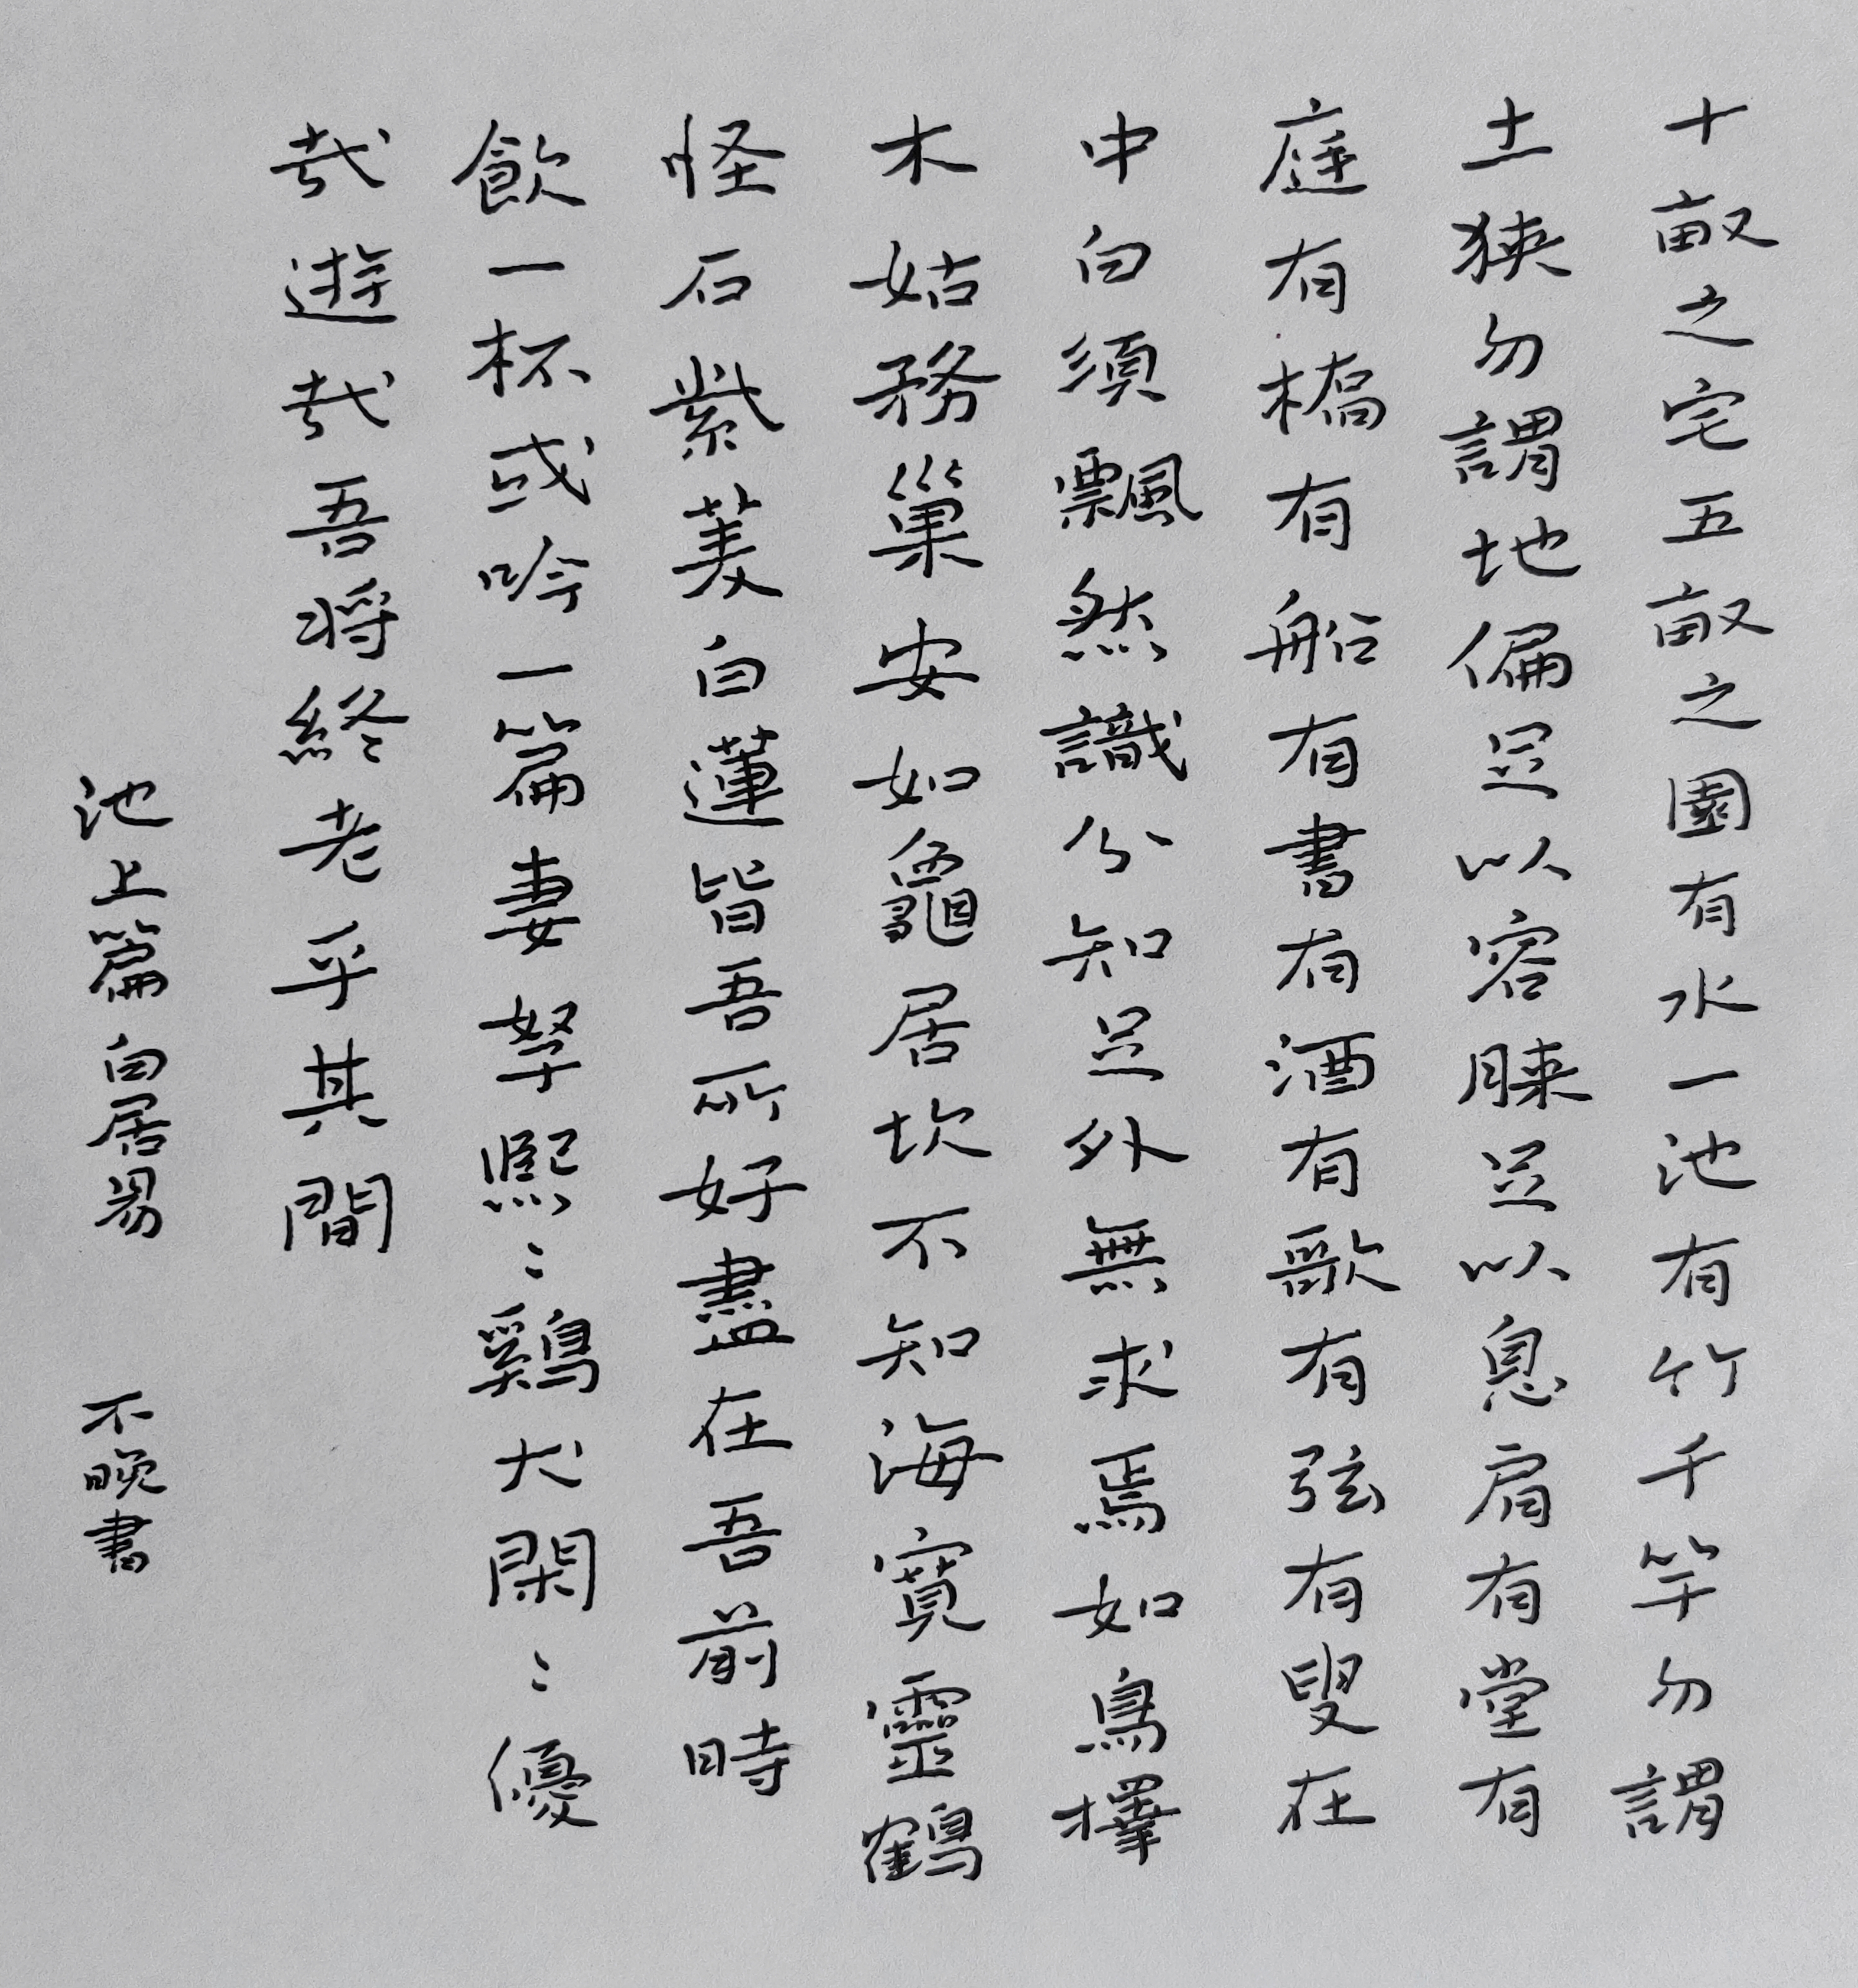 十畝之宅五畝之園有水一池有竹千竿勿謂
土狹勿謂地偏足以容睐足以息肩有堂有
庭有橋有船有書有酒有歌有弦有叟在
中白須飄然識分知足外無求焉如鳥擇
木姑務巢安如龜居坎不知海寬靈鶴
怪石紫菱白蓮皆吾所好盡在吾前時
飲一杯或吟一篇妻孥熙〻鷄犬閑〻優
哉遊哉吾将終老乎其間
池上篇白居易 不晚書